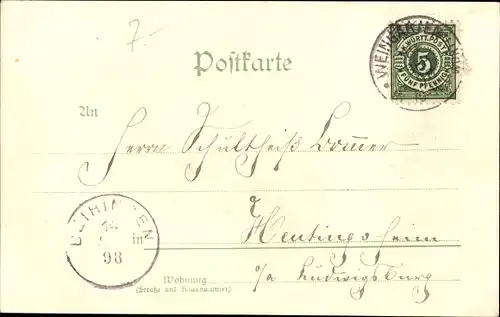 7-
Postkarte
WEINGARTEN
K. WÜRTT. POST
5
FÜNF PFENNIG
An
Herrn Schultheiß Lommer
BEIHINGEN
14
98
in Heutingsheim
o/a Ludwigsburg
Wohnung
(Straße und Hausnummer)